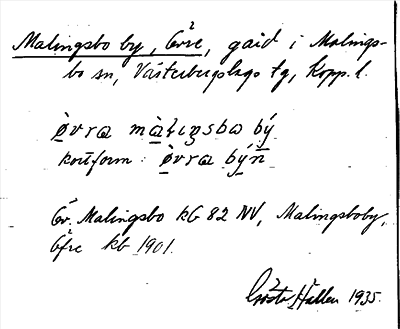 Malingsbo by, Övre, gård i Malings-
bo sn, Västerbergslags tg, Kopp. l.
òvra màlıŋsbo bý
kortform: òvra býn
Öv. Malingsbo kG 82 NV, Malingsboby,
Öfre kb 1901.
Gösta Hallen 1935.